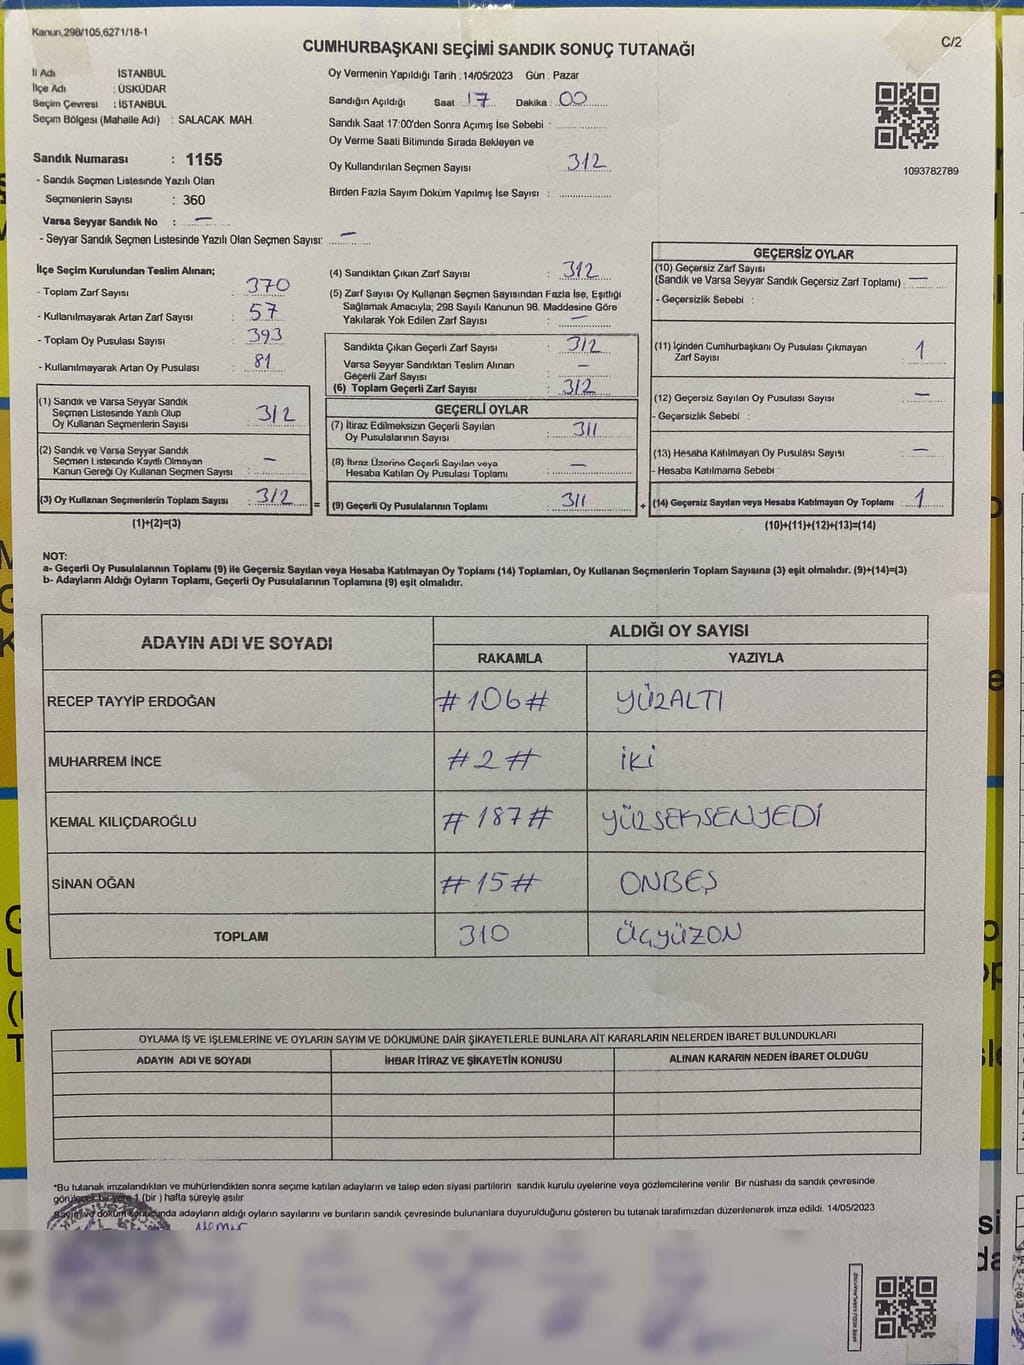 Kanun,298/105,6271/18-1
C/2
CUMHURBAŞKANI SEÇİMİ SANDIK SONUÇ TUTANAĞI
İl Adı İSTANBUL
İlçe Adı : ÜSKÜDAR
Seçim Çevresi : İSTANBUL
Seçim Bölgesi (Mahalle Adı) : SALACAK MAH.
Sandık Numarası : 1155
- Sandık Seçmen Listesinde Yazılı Olan
Seçmenlerin Sayısı : 360
Varsa Seyyar Sandık No : —
- Seyyar Sandık Seçmen Listesinde Yazılı Olan Seçmen Sayısı: —
Oy Vermenin Yapıldığı Tarih : 14/05/2023 Gün : Pazar
Sandığın Açıldığı Saat : 17 Dakika : 00
Sandık Saat 17:00'den Sonra Açımış İse Sebebi :
Oy Verme Saati Bitiminde Sırada Bekleyen ve
Oy Kullandırılan Seçmen Sayısı 312
Birden Fazla Sayım Döküm Yapılmış İse Sayısı :
1093782789
İlçe Seçim Kurulundan Teslim Alınan;
- Toplam Zarf Sayısı : 370
- Kullanılmayarak Artan Zarf Sayısı : 57
- Toplam Oy Pusulası Sayısı : 393
- Kullanılmayarak Artan Oy Pusulası : 81
(1) Sandık ve Varsa Seyyar Sandık
Seçmen Listesinde Yazılı Olup
Oy Kullanan Seçmenlerin Sayısı : 312
(2) Sandık ve Varsa Seyyar Sandık
Seçmen Listesinde Kayıtlı Olmayan
Kanun Gereği Oy Kullanan Seçmen Sayısı : —
(3) Oy Kullanan Seçmenlerin Toplam Sayısı : 312 =
(1)+(2)=(3)
(4) Sandıktan Çıkan Zarf Sayısı : 312
(5) Zarf Sayısı Oy Kullanan Seçmen Sayısından Fazla İse, Eşitliği
Sağlamak Amacıyla; 298 Sayılı Kanunun 98. Maddesine Göre
Yakılarak Yok Edilen Zarf Sayısı : —
Sandıkta Çıkan Geçerli Zarf Sayısı : 312
Varsa Seyyar Sandıktan Teslim Alınan
Geçerli Zarf Sayısı : —
(6) Toplam Geçerli Zarf Sayısı : 312
GEÇERLİ OYLAR
(7) İtiraz Edilmeksizin Geçerli Sayılan
Oy Pusulalarının Sayısı : 311
(8) İtiraz Üzerine Geçerli Sayılan veya
Hesaba Katılan Oy Pusulası Toplamı : —
(9) Geçerli Oy Pusulalarının Toplamı : 311 +
GEÇERSİZ OYLAR
(10) Geçersiz Zarf Sayısı
(Sandık ve Varsa Seyyar Sandık Geçersiz Zarf Toplamı) : —
- Geçersizlik Sebebi :
(11) İçinden Cumhurbaşkanı Oy Pusulası Çıkmayan
Zarf Sayısı : 1
(12) Geçersiz Sayılan Oy Pusulası Sayısı : —
- Geçersizlik Sebebi :
(13) Hesaba Katılmayan Oy Pusulası Sayısı : —
- Hesaba Katılmama Sebebi :
(14) Geçersiz Sayılan veya Hesaba Katılmayan Oy Toplamı : 1
(10)+(11)+(12)+(13)=(14)
NOT:
a- Geçerli Oy Pusulalarının Toplamı (9) ile Geçersiz Sayılan veya Hesaba Katılmayan Oy Toplamı (14) Toplamları, Oy Kullanan Seçmenlerin Toplam Sayısına (3) eşit olmalıdır. (9)+(14)=(3)
b- Adayların Aldığı Oyların Toplamı, Geçerli Oy Pusulalarının Toplamına (9) eşit olmalıdır.
ADAYIN ADI VE SOYADI ALDIĞI OY SAYISI
RAKAMLA YAZIYLA
RECEP TAYYİP ERDOĞAN #106# YÜZALTI
MUHARREM İNCE #2# İKİ
KEMAL KILIÇDAROĞLU #187# YÜZSEKSENYEDİ
SİNAN OĞAN #15# ONBEŞ
TOPLAM 310 ÜÇYÜZON
OYLAMA İŞ VE İŞLEMLERİNE VE OYLARIN SAYIM VE DÖKÜMÜNE DAİR ŞİKAYETLERLE BUNLARA AİT KARARLARIN NELERDEN İBARET BULUNDUKLARI
ADAYIN ADI VE SOYADI İHBAR İTİRAZ VE ŞİKAYETİN KONUSU ALINAN KARARIN NEDEN İBARET OLDUĞU
*Bu tutanak imzalandıktan ve mühürlendikten sonra seçime katılan adayların ve talep eden siyasi partilerin sandık kurulu üyelerine veya gözlemcilerine verilir Bir nüshası da sandık çevresinde
görülecek bir yere 1 (bir ) hafta süreyle asılır
Sayım ve döküm sonucunda adayların aldığı oyların sayılarını ve bunların sandık çevresinde bulunanlara duyurulduğunu gösteren bu tutanak tarafımızdan düzenlenerek imza edildi. 14/05/2023